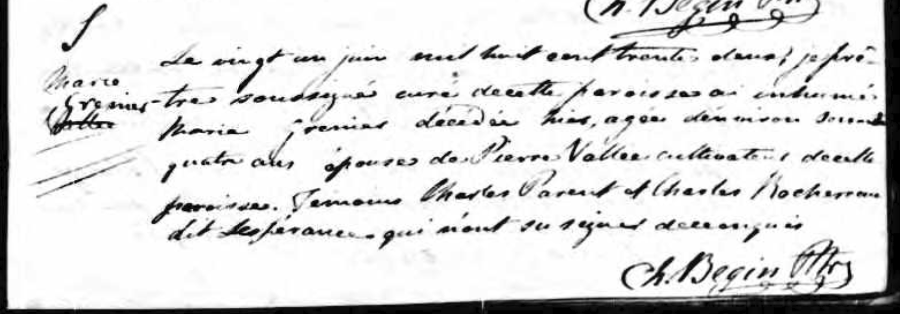 Ch. Begin Ptre
S
Marie
Grenier
Le vingt un juin mil huit cent trente deux, je prê-
tre soussigné curé de cette paroisse ai inhumé
Marie Grenier décédée hier, agée d'environ
quatre ans épouse de Pierre Vallée cultivateur de cette
paroisse. Temoins Charles Parent et Charles Rochereau
dit Lespérance qui n'ont su signer de ce enquis
Ch. Begin Ptre